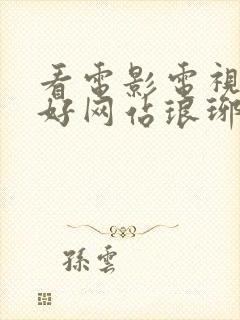 看電影電視
好网佔琅琊
孫雲